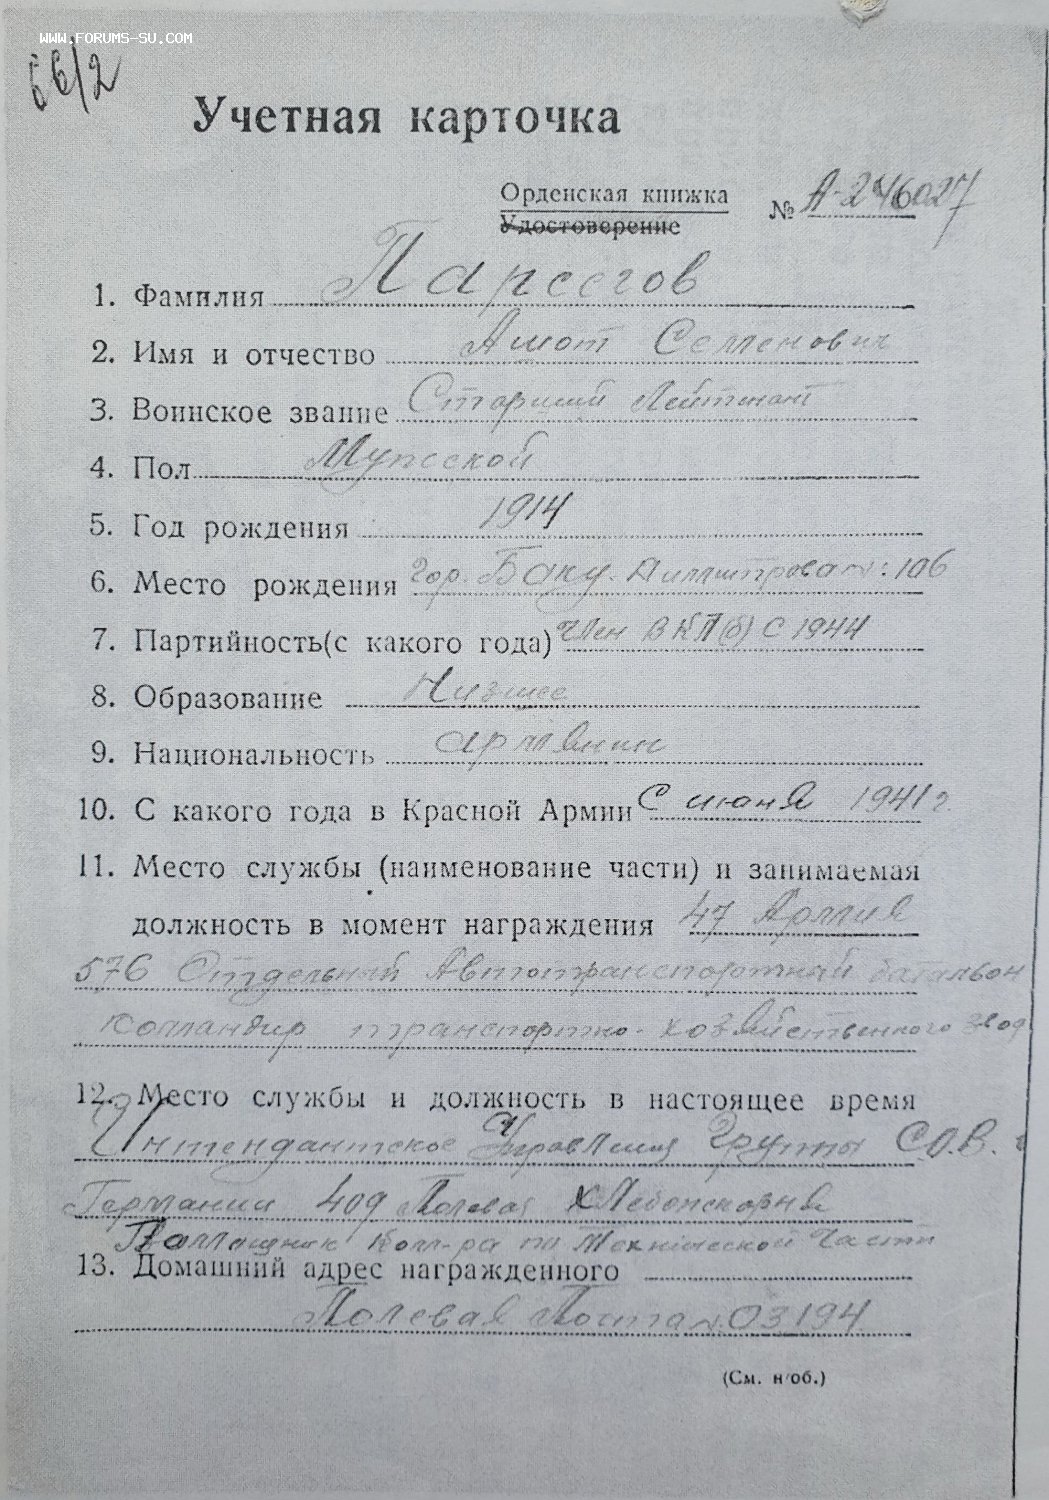 WWW.FORUMS-SU.COM
66/2
Учетная карточка
Орденская книжка № А-246027
Удостоверение
1. Фамилия Парсегов
2. Имя и отчество Амот Семенович
3. Воинское звание Старший Лейтенант
4. Пол Мужской
5. Год рождения 1914
6. Место рождения гор. Баку. 106
7. Партийность(с какого года) член ВКП(б) с 1944
8. Образование Низшее
9. Национальность армянин
10. С какого года в Красной Армии С июня 1941 г
11. Место службы (наименование части) и занимаемая
должность в момент награждения 47 Армия
576 Отдельный Автотранспортный батальон
Командир транспортно-хозяйственного взвод
12. Место службы и должность в настоящее время
Интендантское Управления Группы С.О.В. г
Германии 409 Полевая Хлебопекарня
Помлщник Ком-ра по Технической Части
13. Домашний адрес награжденного
Полевая Почта N. 03194
(См. н/об.)